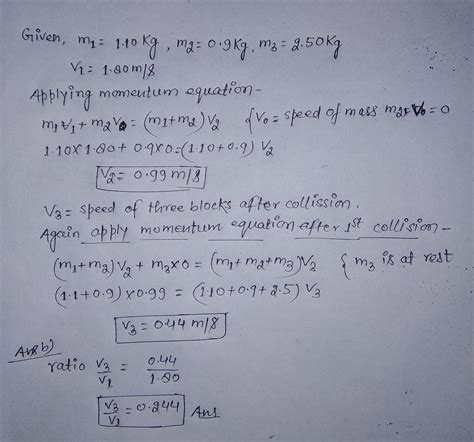 Given, m₁ = 1.10 Kg, m₂ = 0.9Kg, m₃ = 2.50Kg
V₁ = 1.80 m/s
Applying momentum equation-
m₁V₁ + m₂V₀ = (m₁+m₂) V₂ { V₀ = speed of mass m₂, V₀ = 0
1.10X1.80 + 0.9X0 = (1.10+0.9) V₂
V₂ = 0.99 m/s
V₃ = speed of three blocks after collission.
Again apply momentum equation after 1st collision -
(m₁+m₂) V₂ + m₃X0 = (m₁+m₂+m₃)V₂ { m₃ is at rest
(1.1+0.9) X0.99 = (1.10+0.9+2.5) V₃
V₃ = 0.44 m/s
Ans b)
ratio V₃/V₁ = 0.44/1.80
V₃/V₁ = 0.244 Ans